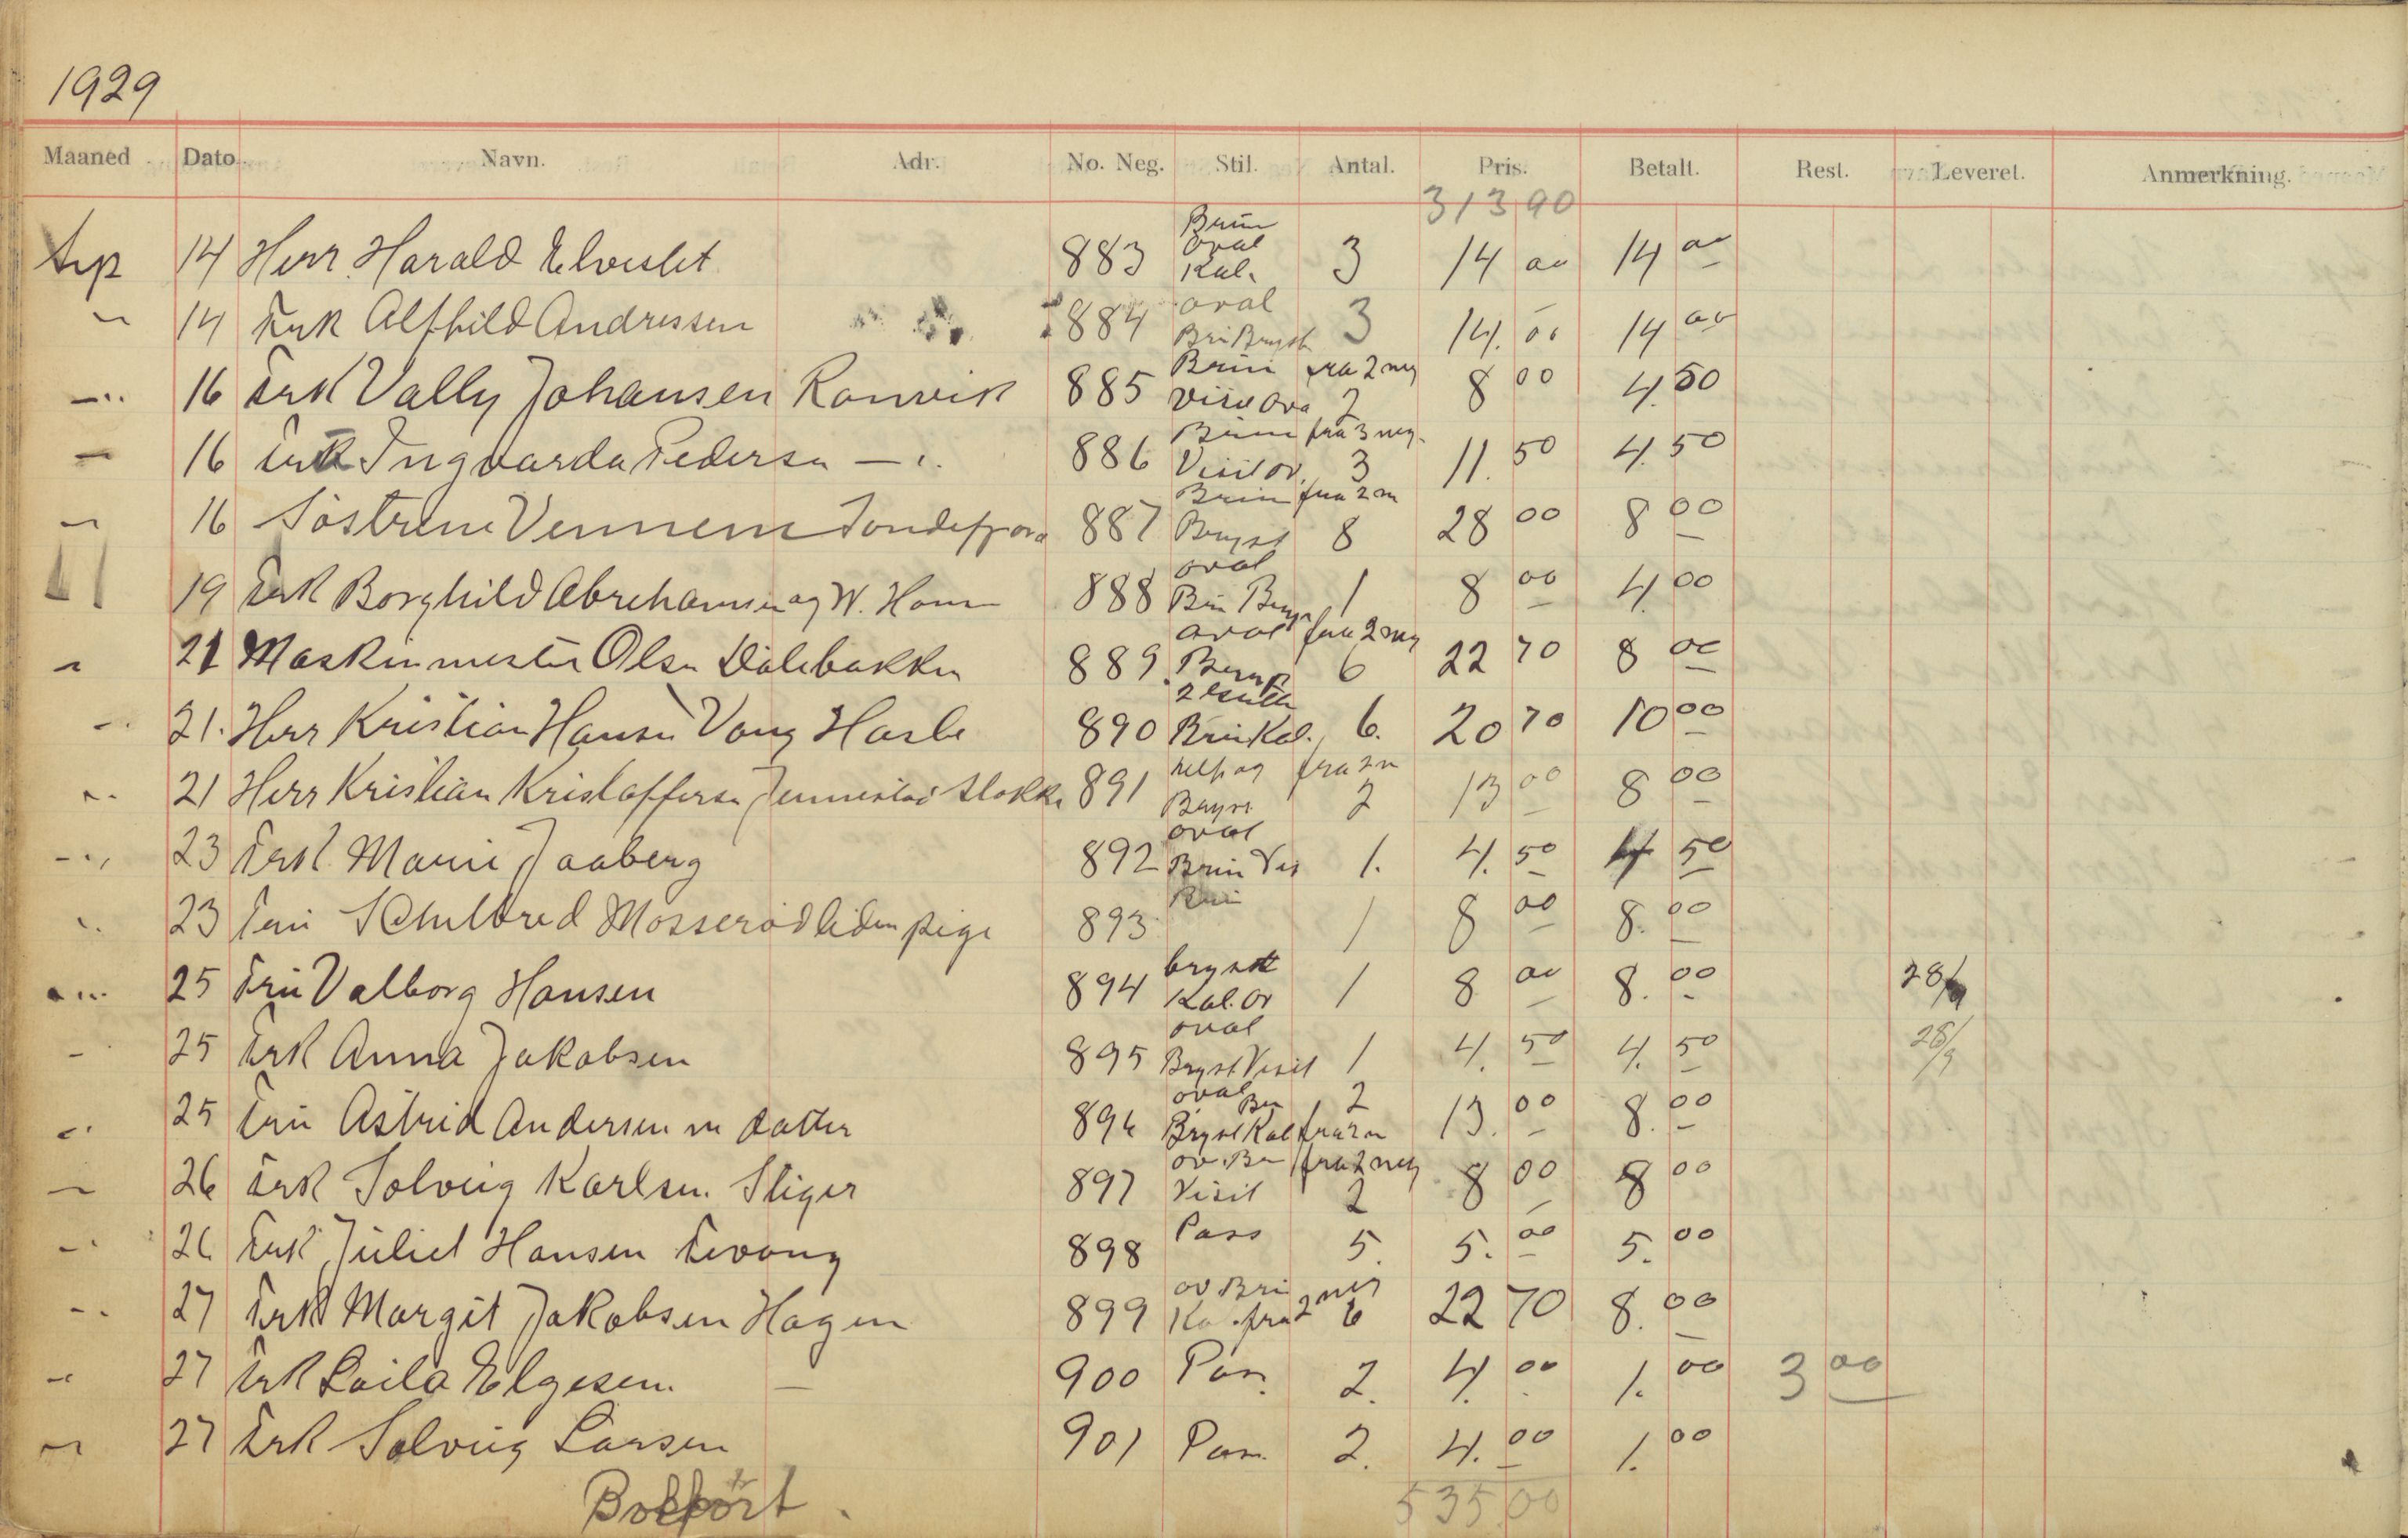 1929
Maaned Dato Navn. Adr. No. Neg. Stil. Antal. Pris. Betalt. Rest. Leveret. Anmerkning.
313 90
Sep 14 Herr Harald Elveslet 883 Brun oval Kal. 3 14 00 14 00
14 Frk Alfhild Andressen 884 oval Bru Bryst 3 14. 00 14 00
16 Frk Vally Johansen Ranvik 885 Brun fra 2 neg 2 8 00 4. 50
16 Frk Ingvarda Pedersn — 886 Brun fra 3 neg. Visit ov. 3 11. 50 4. 50
16 Söstrene Vennem 887 Brun fra 2 n Bryst 8 28 00 8 00
19 Frk Borghild Abrehamsen og W. Hansn 888 oval Bru Bryst 1 8 00 4. 00
21 Maskinmester Olsn Dälebakken 889. oval fra 2 neg 6 22 70 8 00
21. Herr Kristian Hansn Vang Hasle 890 Brun Kal. 6. 20 70 10 00
21 Herr Kristian Kristoffersn Jennestad Stokke 891 helf og fra 2 n Bryst 2 13 00 8 00
23 Frk. Marie Jaaberg 892 oval Brun Vis 1. 4. 50 4 50
23 Fru Schulbred Mosserödliden pige 893 Bru 1 8 00 8. 00
25 Fru Valborg Hansen 894 bryst Kal. ov 1 8 00 8. 00 28/9
25 Frk Anna Jakobsen 895 oval Bryst Visit 1 4. 50 4. 50 28/9
25 Fru Astrid Andersen m datter 896 oval Bru Bryst Kal fra 2 n 2 13. 00 8. 00
26 Frk Solveig Karlsen. Stiger 897 ov. Bru fra 2 neg Visit 2 8 00 8 00
26 Frk Juliet Hansen Fevang 898 Pass 5. 5. 00 5. 00
27 Frk Margit Jakobsen Hagen 899 ov Bru Ka. fra 2 neg 6 22 70 8. 00
27 Frk Laila Elgesem. — 900 Pas. 2. 4. 00 1. 00 3 00
27 Frk Solveig Larsen 901 Pas. 2. 4. 00 1. 00
Bokfört. 535 00